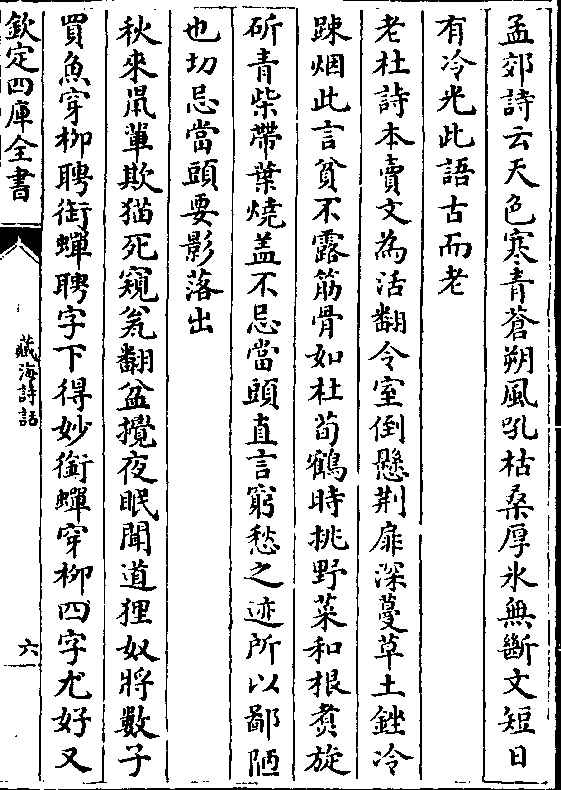 孟郊詩云天色寒青蒼朔風吼枯桑厚氷無斷文短日
有冷光此語古而老
老杜詩本賣文為活翻令室倒懸荆扉深蔓草土銼冷
踈烟此言貧不露筋骨如杜荀鶴時挑野菜和根煑旋
斫青柴帶葉燒盖不忌當頭直言窮愁之迹所以鄙陋
也切忌當頭要影落出
秋來鼠輩欺猫死窺瓮翻盆攪夜眠聞道狸奴將數子
買魚穿柳聘銜蟬聘字下得妙銜蟬穿柳四字尤好又
欽定四庫全書
藏海詩話
六